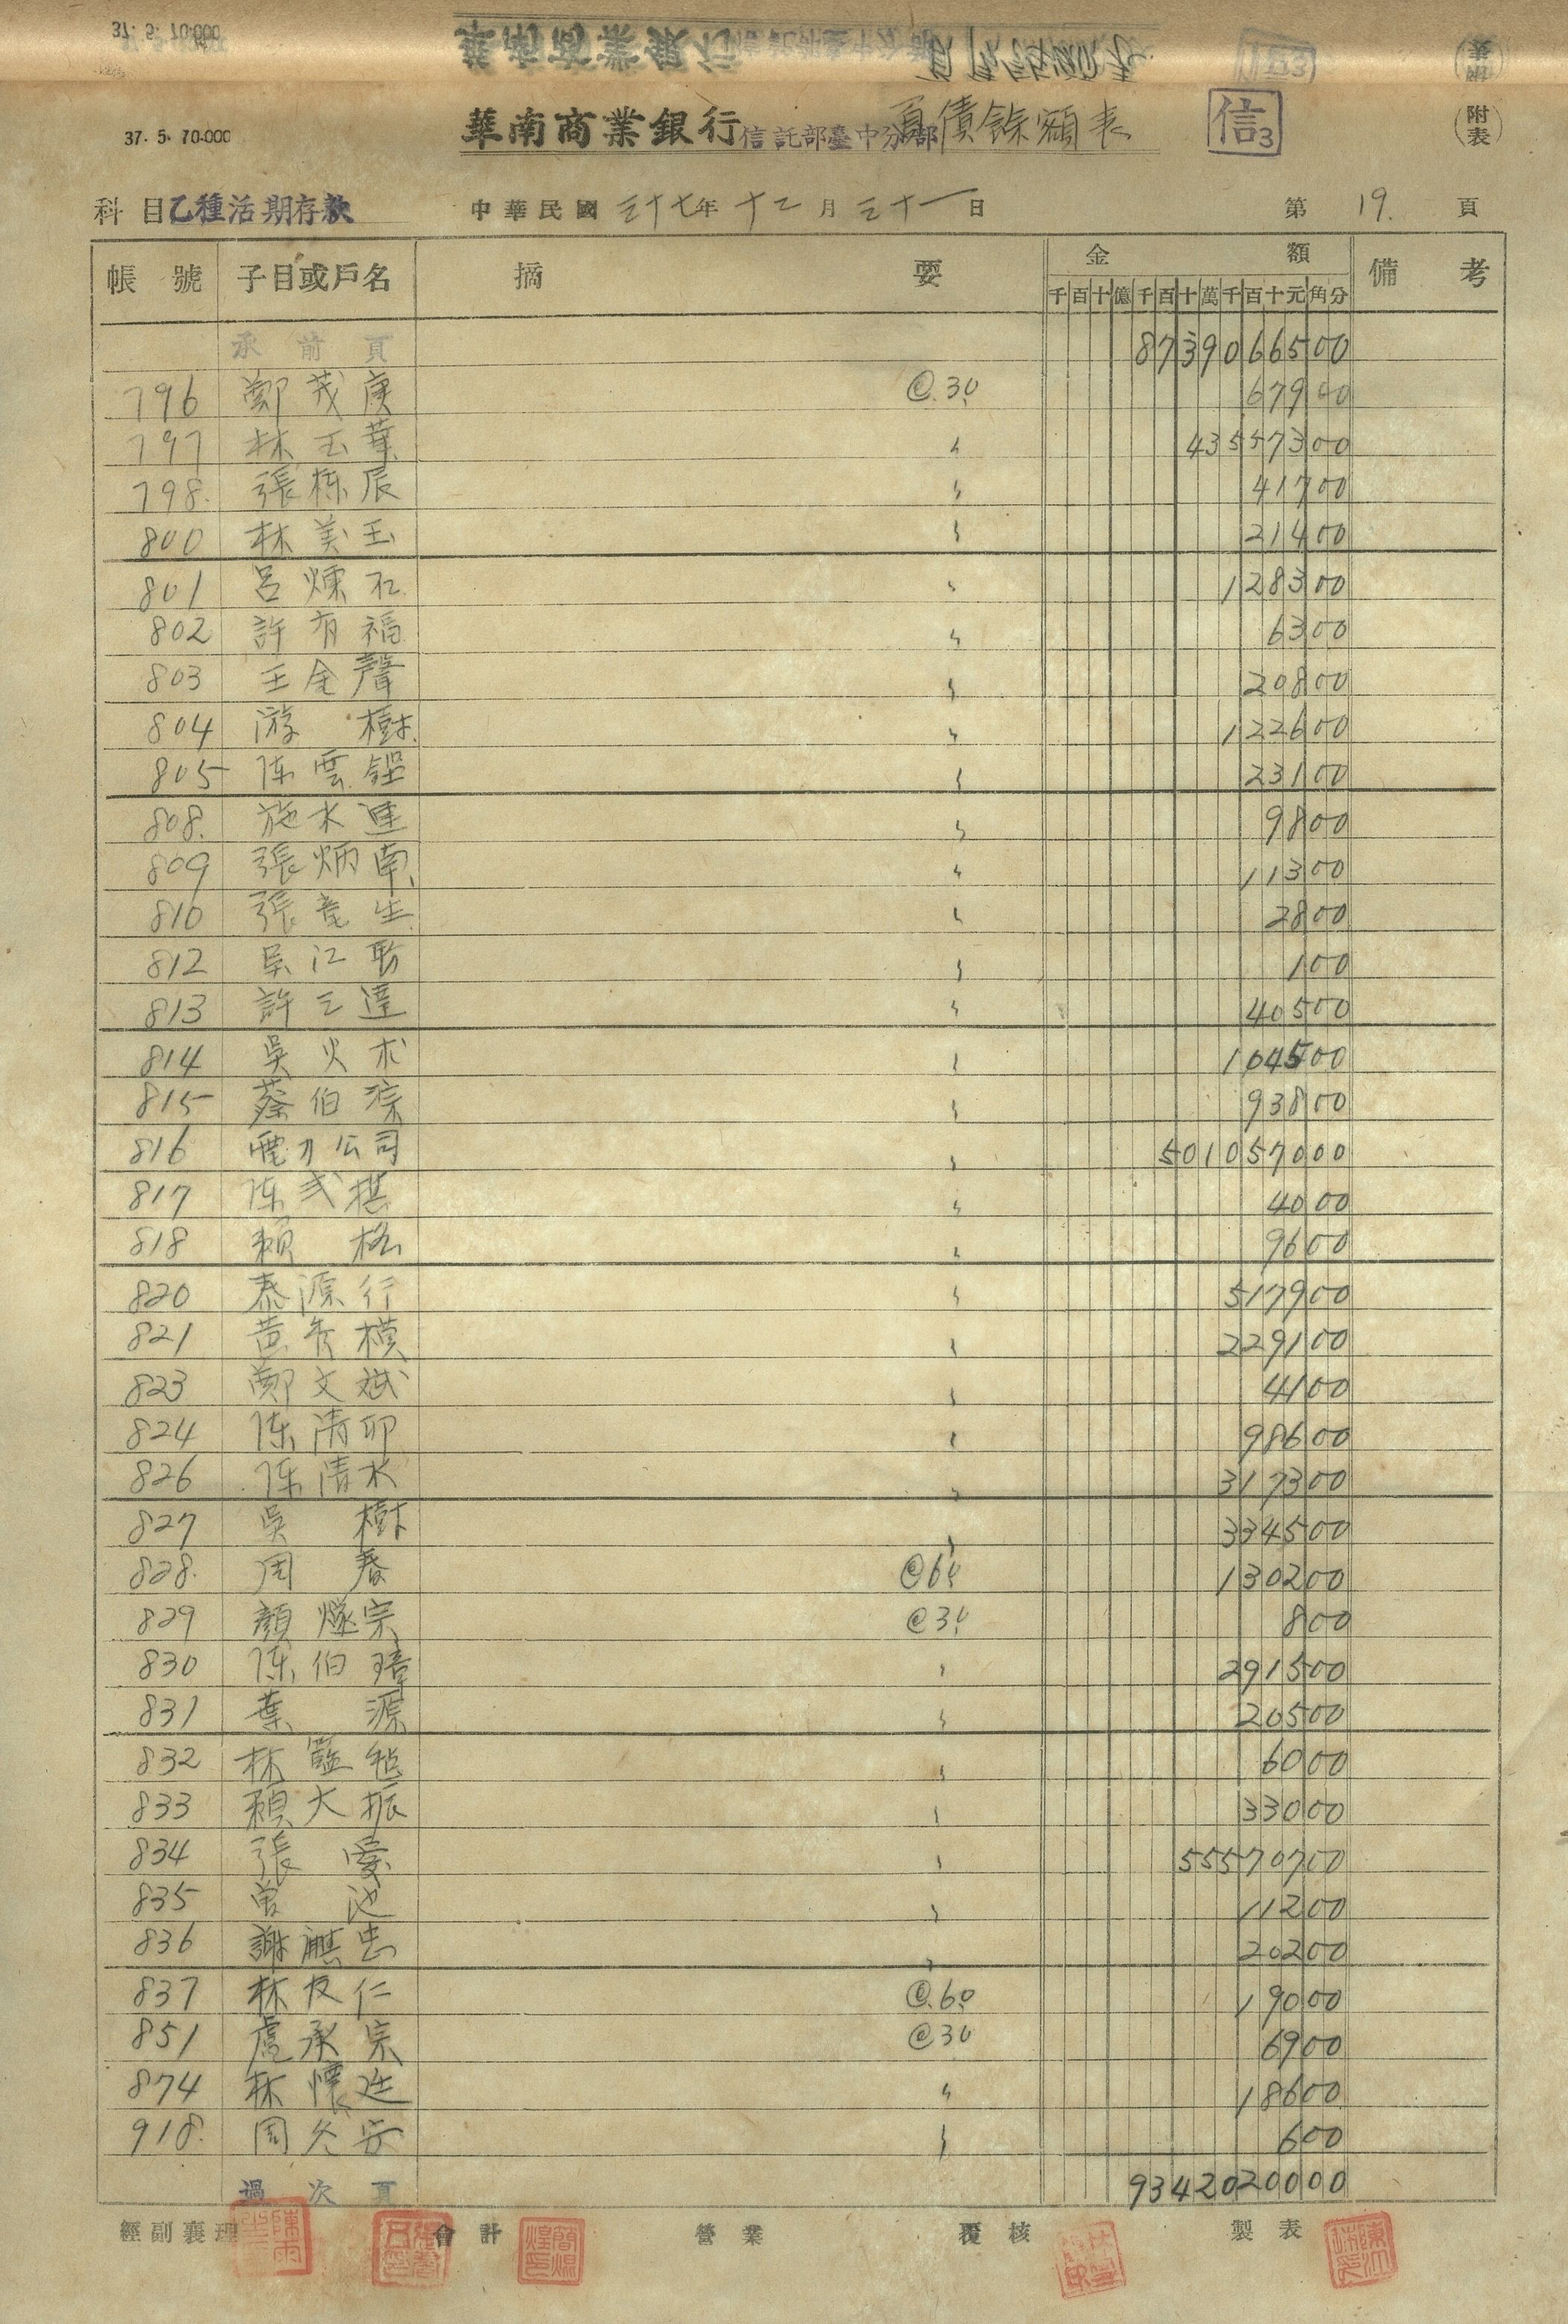 37. 5. 70.000
華南商業銀行信託部臺中分部負債餘額表
信3
(附表)
科目乙種活期存款 中華民國三十七年十二月三十一日 第19.頁
帳號 子目或戶名 摘要 金額 備考
千百十億千百十萬千百十元角分
承前頁 8739066500
796 鄭茂庚 @30 67900
797 林玉華 〃 43557300
798. 張栋辰 〃 41700
800 林美玉 〃 21400
801 呂煉石 〃 128300
802 許有福 〃 6300
803 王金聲 〃 20800
804 游樹 〃 122600
805 陈雲 〃 23100
808. 施水連 〃 9800
809 張炳南 〃 11300
810 張竜生 〃 2800
812 吳江 〃 100
813 許三達 〃 40500
814 吳火木 〃 104500
815 蔡伯淙 〃 93800
816 電力公司 〃 501057000
817 陈式棋 〃 4000
818 賴格 〃 9600
820 泰源行 〃 517900
821 黃秀模 〃 229100
823 鄭文斌 〃 4100
824 陈清卯 〃 98600
826 陈清水 〃 317300
827 吳樹 〃 334500
828. 周春 @60 130200
829 顏燧宗 @30 800
830 陈伯璋 〃 291500
831 葉源 〃 20500
832 林籃毡 〃 6000
833 賴大振 〃 33000
834 張愛 〃 55570700
835 曾池 〃 11200
836 謝麒忠 〃 20200
837 林友仁 @60 19000
851 盧承宗 @30 6900
874 林懷廷 〃 18600
918. 周冬安 〃 600
過次頁 9342020000
經副襄理 會計 營業 覆核 製表